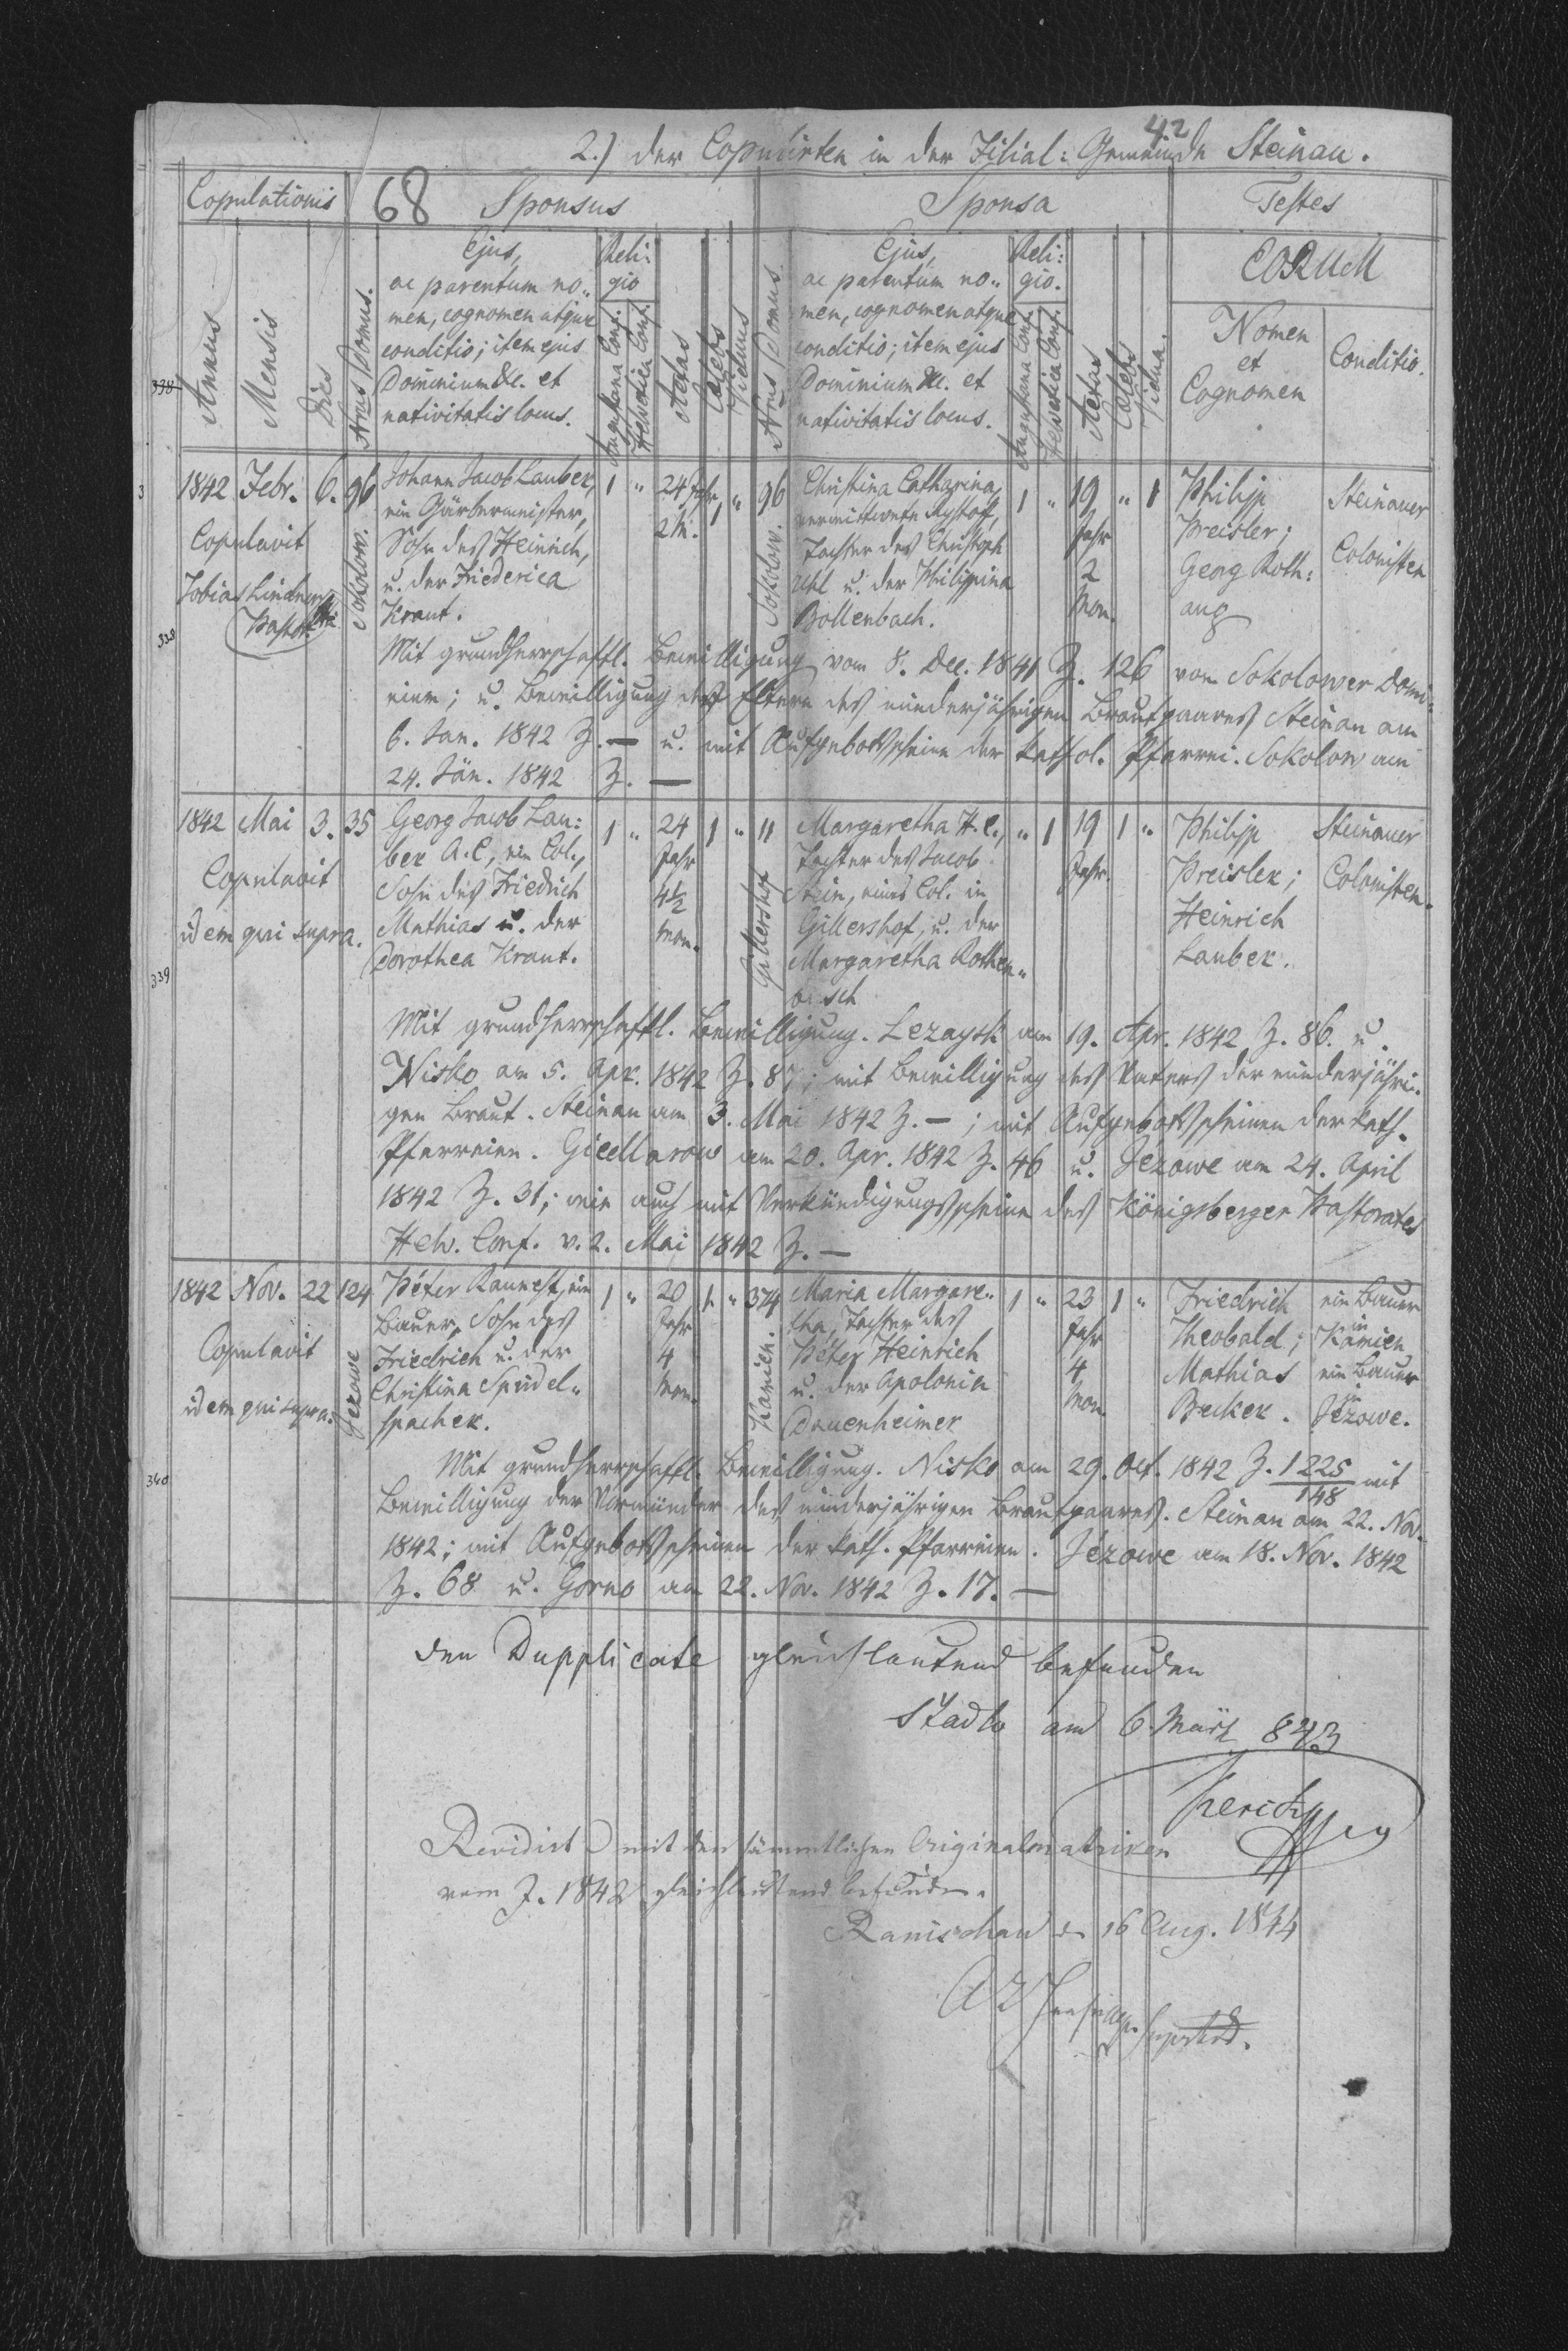 42
2.) der Copulirten in der Filial: Gemeinde Steinau.
Copulationis 68 Sponsus Sponsa Testes
Annus Mensis Dies Nrus Domus.
Ejus,
ac parentum no„
men, cognomen atque
conditio; item ejus
Dominium &c. et
nativitatis locus.
Reli:
gio
Augustana Conf.
Helvetica Conf.
Aetas
Caelebs
Viduus
Nrus Domus
Ejus,
ac parentum no„
men, cognomen atque
conditio; item ejus
Dominium &c. et
nativitatis locus.
Reli:
gio.
Augustana Conf.
Helvetica Conf.
Aetas
Caelebs
Vidua.
EORUM
Nomen
et
Cognomen
Conditio.
338
3
1842 Febr. 6. 96
Copulavit
Tobias
Pastor
Sokolow.
Johann Jacob Lauber,
ein Gärbermeister,
Sohn des Heinrich,
u. der Friederica
Kraut.
1 „ 24 Jahr, 2 M. 1 „ 96
Sokolow.
Christina Catharina,
verwittwete
Tochter des Christoph
Uhl u. der Philippina
Bollenbach.
1 „ 19 Jahr 2 Mon. „ 1
Philipp
Preisler;
Georg Roth:
aug
Steinauer
Colonisten
338
Mit grundherrschaftl. Bewilligung vom 8. Dec. 1841 Z. 126 vom Sokolower Domi:
nium; u. Bewilligung der Eltern des minderjährigen Brautpaares Steinau am
6. Jan. 1842 Z. — u. mit Aufgebotsscheine der kathol. Pfarrei. Sokolow am
24. Jän. 1842 Z. —
1842 Mai 3. 35
Copulavit
idem qui supra.
Georg Jacob Lau:
ber A. C., ein Col.,
Sohn des Friedrich
Mathias u. der
Dorothea Kraut.
1 „ 24 Jahr 4½ Mon. 1 „ 11
Gillershof
Margaretha H. C.,
Tochter des Jacob
Stein, eines Col. in
Gillershof, u. der
Margaretha Rothen„
busch
„ 1 19 Jahr. 1 „
Philipp
Preisler;
Heinrich
Lauber.
Steinauer
Colonisten.
339
Mit grundherrschaftl. Bewilligung. Lezaysk am 19. Apr. 1842 Z. 86. u.
Nisko am 5. Apr. 1842 Z. 87; mit Bewilligung des Vaters der minderjähri„
gen Braut. Steinau am 3. Mai 1842 Z. — ; mit Aufgebotsscheinen der kath.
Pfarreien. Giedlarow am 20. Apr. 1842 Z. 46 u. Jezowe am 24. April
1842 Z. 31; wie auch mit Verkündigungsscheine des Königsberger Pastorates
Helv. Conf. v. 2. Mai 1842 Z. —
1842 Nov. 22 124
Copulavit
idem qui supra.
Jezowe
Peter Kaunest, ein
Bauer, Sohn des
Friedrich u. der
Christina Spudel„
spacher.
1 „ 20 Jahr 4 Mon. 1. „ 374
Kamien.
Maria Margare„
tha, Tochter des
Peter Heinrich
u. der Apolonia
Dauenheimer
1 „ 23 Jahr 4 Mon. 1 „
Friedrich
Theobald;
Mathias
Becker.
ein Bauer
in
Kamien
ein Bauer
in
Jezowe.
340
Mit grundherrschaftl. Bewilligung. Nisko am 29. Oct. 1842 Z. 1225/148 mit
Bewilligung der Vormünder des minderjährigen Brautpaares. Steinau am 22. Nov.
1842; mit Aufgebotsscheinen der kath. Pfarreien. Jezowe am 18. Nov. 1842
Z. 68 u. Gorno am 22. Nov. 1842 Z. 17. —
Den Dupplicate gleichlautend befunden
Stadlo am 6. März 843
Revidirt u. mit den sämmtlichen Originalmatriken
vom J. 1842 gleichlautend befunden.
Ranischau d. 16 Aug. 1844